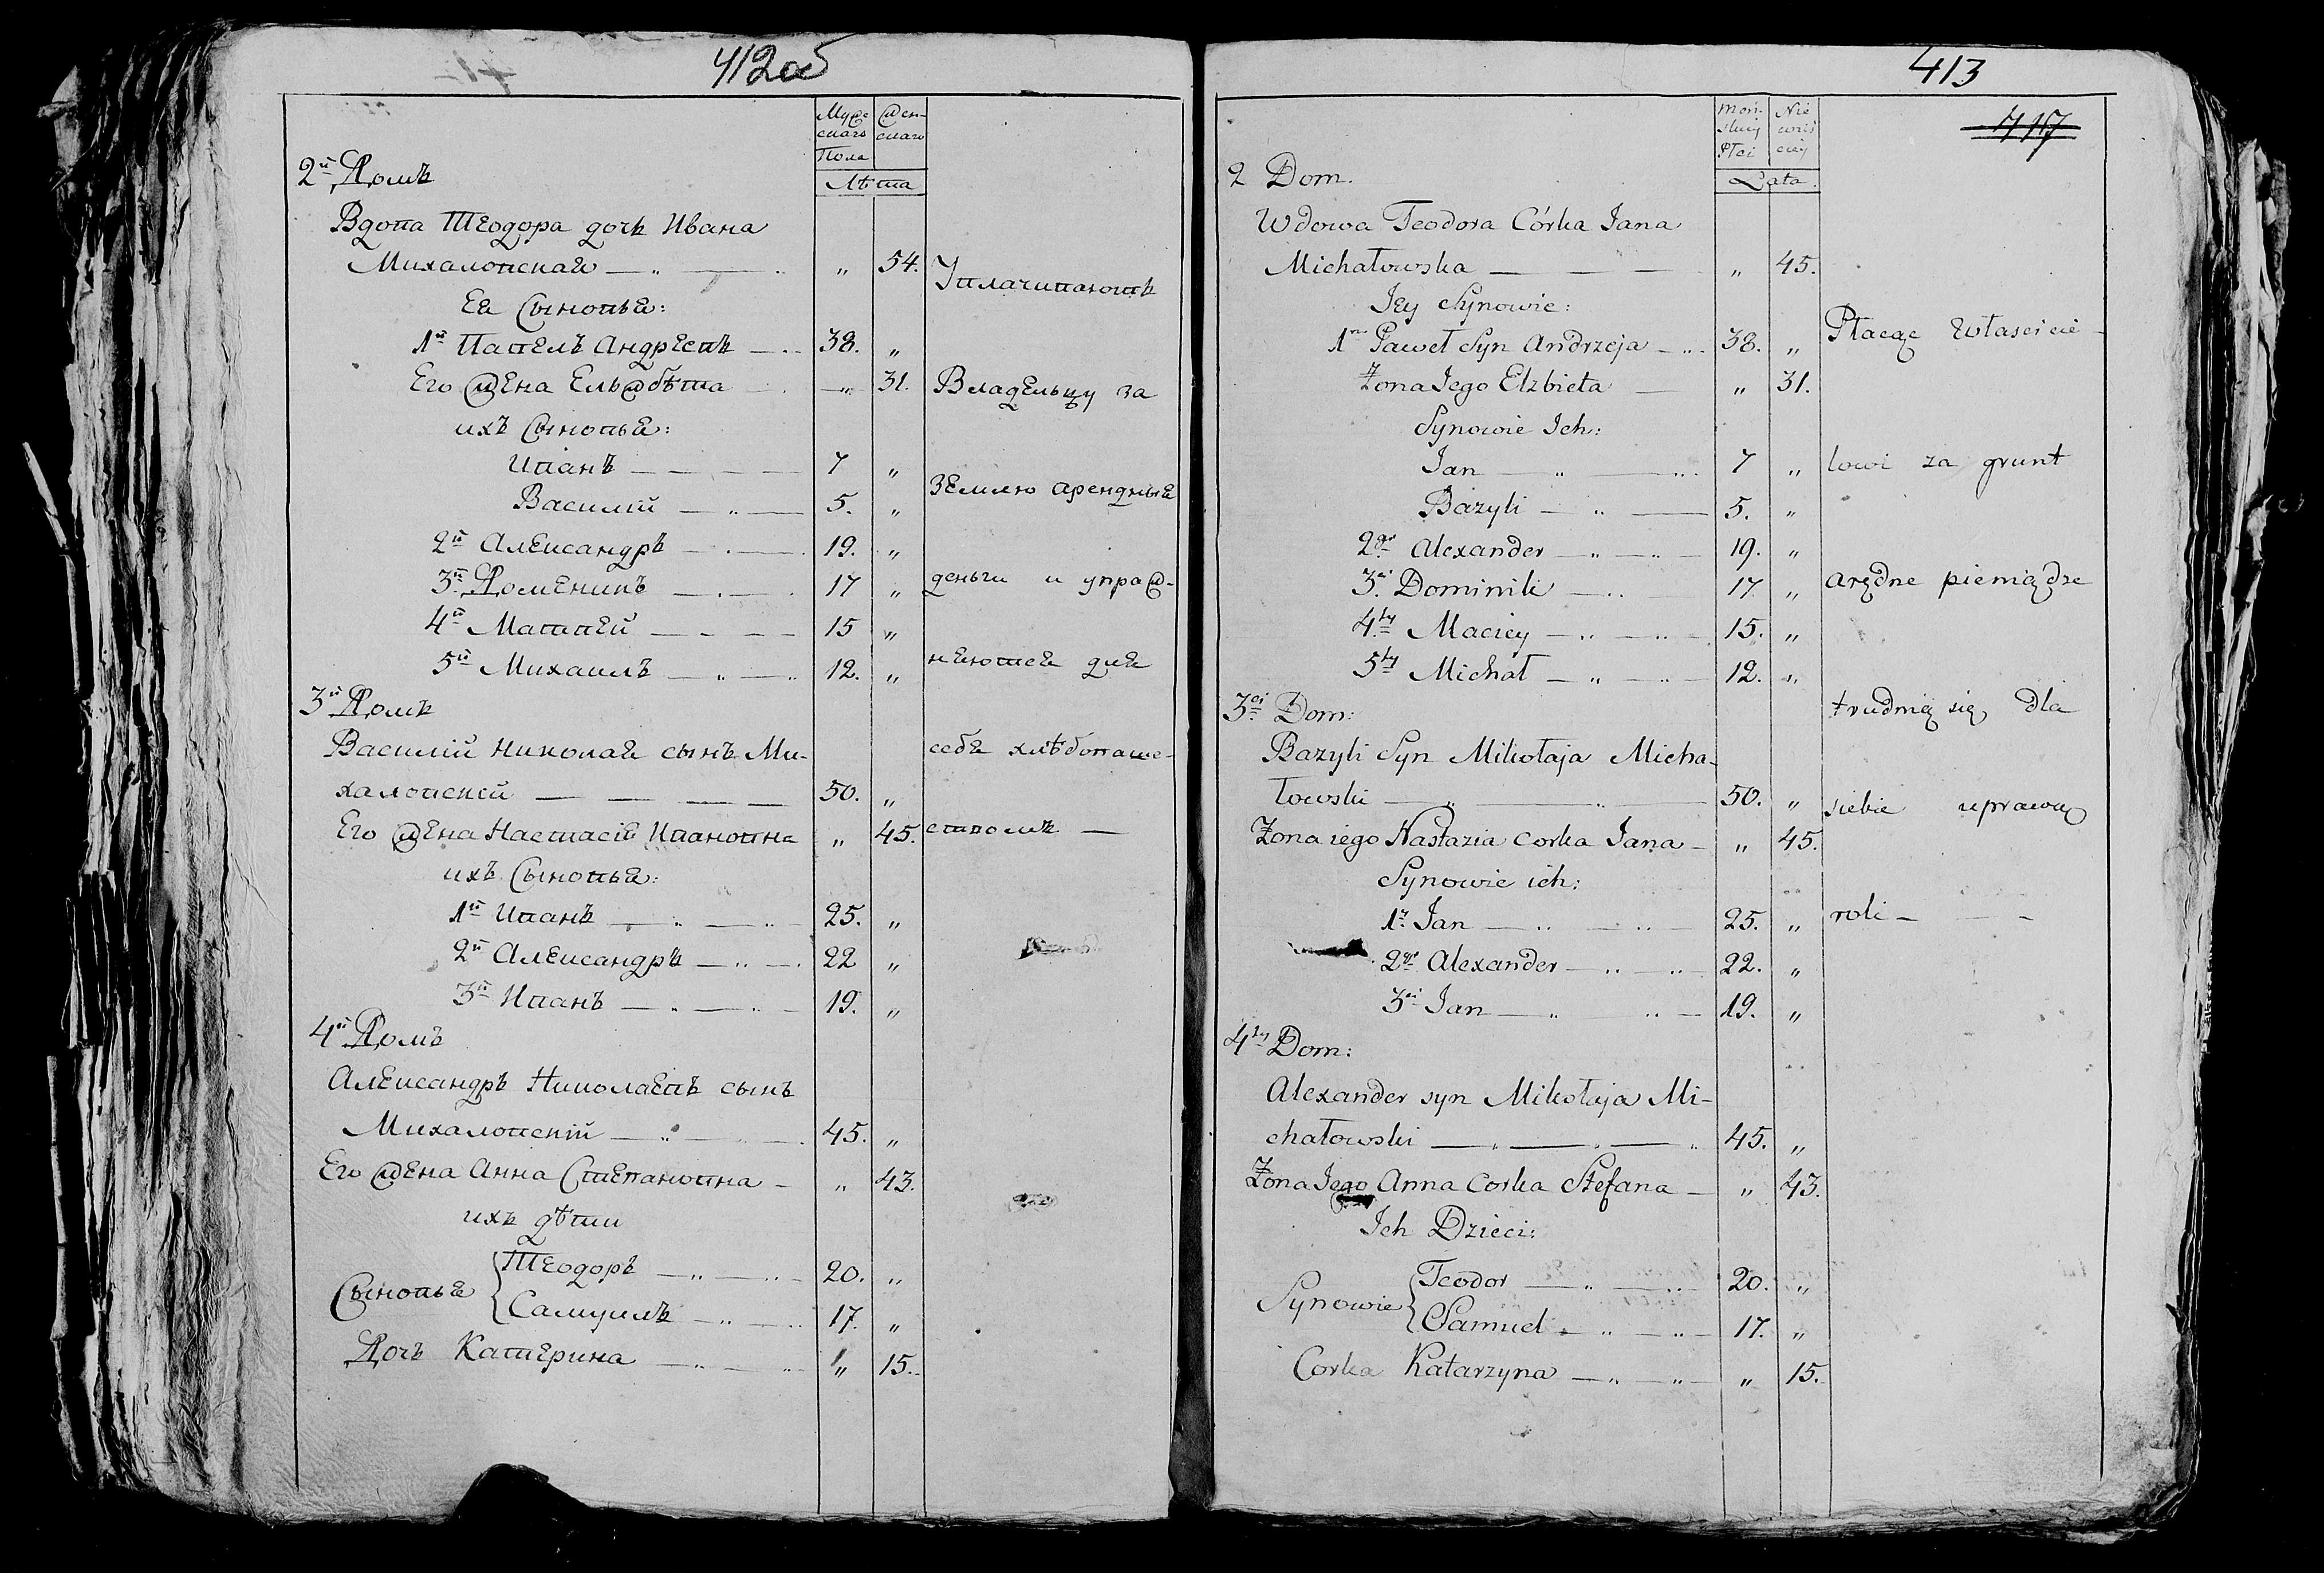 412об
Мужескаго Женскаго
Пола
Лѣта
2й Домъ
Вдова Теодора дочь Ивана
Михаловская — „ 54.
Уплачиваютъ
Ея Сыновья:
1й Павелъ Андреевъ — 38. „
Его жена Ельжбѣта — „ 31.
Владельцу за
ихъ Сыновья:
Иванъ — 7 „
землю арендныя
Василій — 5. „
2й Александръ — 19. „
3й Доменикъ — 17 „
деньги и упраж-
4й Матвей — 15 „
5й Михаилъ — 12. „
няются для
3й Домъ
Василій Николая сынъ Ми-
себя хлѣбопаше-
халовскій — 50. „
Его жена Настасія Ивановна „ 45.
ством —
ихъ Сыновья:
1й Иванъ — 25. „
2й Александръ — 22 „
3й Иванъ — 19. „
4й Домъ
Александръ Николаевъ сынъ
Михаловскій — 45. „
Его жена Анна Степановна — „ 43.
ихъ дѣти
Сыновья { Теодоръ — 20. „
Самуилъ — 17. „
Дочь Катерина — „ 15.
413
417
Męń-
skiy
Płci
Nie
wieś
ciey
Lata.
2 Dom.
Wdowa Teodora Córka Jana
Michałowska — „ 45.
Jey Synowie:
1n Paweł Syn Andrzeja — 38. „
Płacąc właścicie-
Żona Jego Elzbieta — „ 31.
Synowie Ich:
Jan — 7 „
lowi za grunt
Bazyli — 5. „
2gi Alexander — 19. „
3ci Dominik — 17 „
arędne pieniądze
4ty Maciey — 15. „
5ty Michał — 12. „
3ci Dom:
trudnią się dla
Bazyli Syn Mikołaja Micha-
łowski — 50. „
siebie uprawą
Zona iego Nastazia corka Jana — „ 45.
Synowie ich:
1y Jan — 25. „
roli —
2gi Alexander — 22. „
3ci Jan — 19. „
4ty Dom:
Alexander syn Mikołaja Mi-
chałowski — 45. „
Żona Jego Anna Corka Stefana — „ 43.
Ich Dzieci:
Synowie { Teodor — 20. „
Samuel — 17. „
Corka Katarzyna — „ 15.